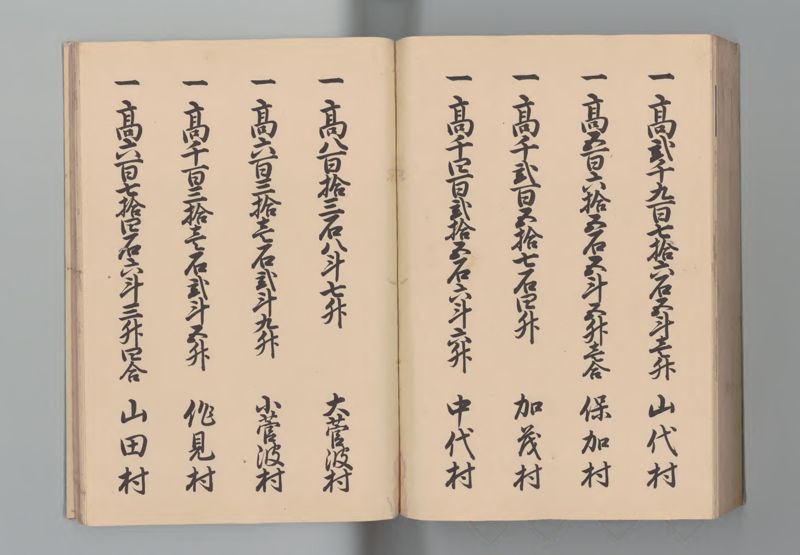 一 高弐千九百七拾六石五斗壱升 山代村
一 高五百六拾五石五斗五升壱合 保加村
一 高千弐百五拾七石四升 加茂村
一 高千四百弐拾五石六斗六升 中代村
一 高八百拾三石八斗七升 大菅波村
一 高六百三拾壱石弐斗九升 小菅波村
一 高千百三拾壱石弐斗五升 作見村
一 高六百七拾四石六斗三升四合 山田村